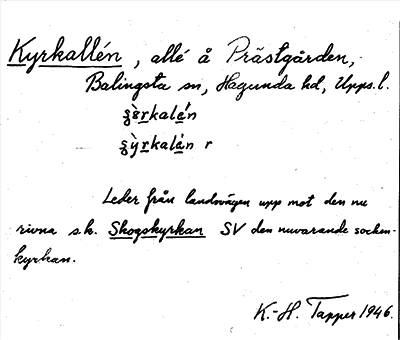 Kyrkallén, allé å Prästgården,
Balingsta sn, Hagunda hd, Upps. l.
Leder från landsvägen upp mot den nu
rivna s.k. Skogskyrkan SV den nuvarande socken-
kyrkan.
K.-H. Tapper 1946.